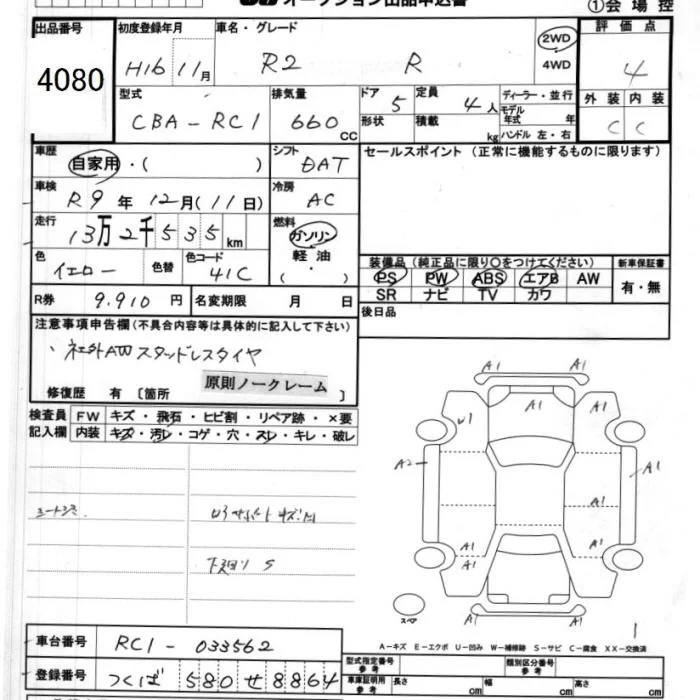 オークション出品申込書 ①会場控
出品番号 初度登録年月 車名・グレード 評価点
4080 H16 11月 R2 R 2WD 4WD 4
型式 排気量 ドア 定員 ディーラー・並行 外装 内装
CBA-RC1 660cc 5 4人 モデル年式 年 C C
形状 積載 kg ハンドル 左・右
車歴 シフト セールスポイント(正常に機能するものに限ります)
自家用・( ) DAT
車検 冷房
R9年 12月(11日) AC
走行 燃料
13万2千535km ガソリン
軽油
( ・ )
色 色替 色コード
イエロー 41C
装備品(純正品に限り〇をつけてください) 新車保証書
PS PW ABS エアB AW 有・無
SR ナビ TV カワ
R券 9.910円 名変期限 月 日
後日品
注意事項申告欄(不具合内容等は具体的に記入して下さい)
、社外AWスタッドレスタイヤ
原則ノークレーム
修復歴 有 〔箇所 〕
検査員 FW キズ・飛石・ヒビ割・リペア跡・×要
記入欄 内装 キズ・汚レ・コゲ・穴・スレ・キレ・破レ
A1
A1 A1 A1
U1
A2 A1
A1
A1 A1
A1 A1
A1
下回り S
スペア
1
A-キズ E-エクボ U-凹み W-補修跡 S-サビ C-腐食 XX-交換済
車台番号 RC1-033562
型式指定番号 参考 類別区分番号 参考
登録番号 つくば 580 せ 8864
車庫証明用 参考 長さ cm 幅 cm 高さ cm